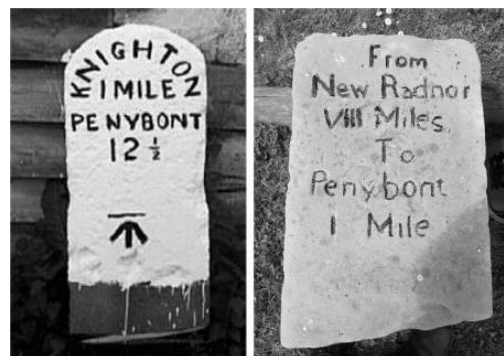 KNIGHTON
1 MILE
PENYBONT
12 ½
From
New Radnor
VIII Miles
To
Penybont
1 Mile